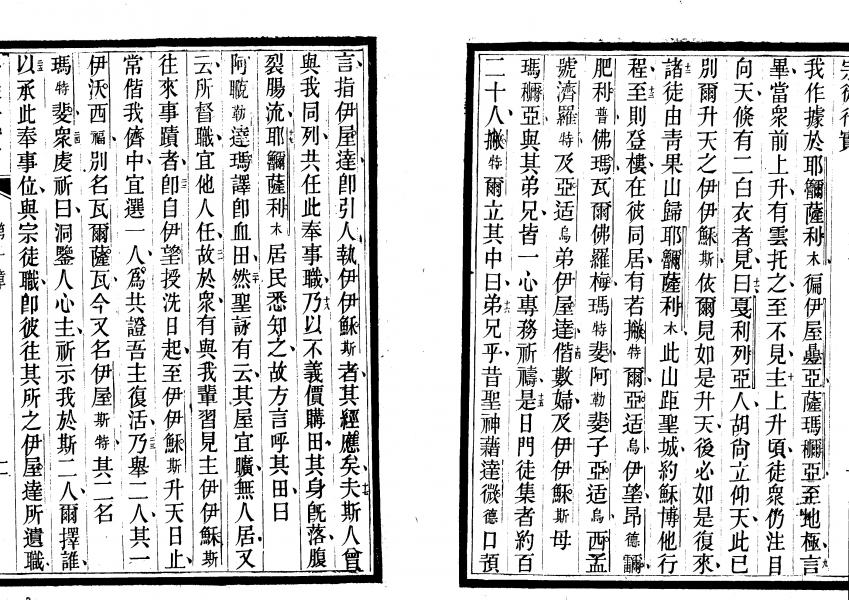 宗徒行實
我作據於耶𮎛薩利木徧伊屋疊亞薩瑪𥡴亞至地極言
畢當衆前上升有雲托之至不見主上升頃徒衆仍注目
向天倐有二白衣者見曰戛利列亞人胡尚立仰天此已
別爾升天之伊伊穌斯依爾見如是升天後必如是復來
諸徒由青果山歸耶𮎛薩利木此山距聖城約穌博他行
程至則登樓在彼同居有若撇特爾亞适烏伊望昂德
肥利普佛瑪瓦爾佛羅梅瑪特斐阿勒斐子亞适烏西孟
號濟羅特及亞适烏弟伊屋達偕數婦及伊伊穌斯母
瑪𥡴亞與其弟兄皆一心專務祈禱是日門徒集者約百
二十人撇特爾立其中曰弟兄乎昔聖神藉達微德口預
言指伊屋達卽引人執伊伊穌斯者其經應矣夫斯人曾
與我同列共任此奉事職乃以不義價購田其身旣落腹
裂腸流耶𮎛薩利木居民悉知之故方言呼其田曰
阿勒達瑪譯卽血田然聖詠有云其屋宜曠無人居又
云所督職宜他人任故於衆有與我輩習見主伊伊穌斯
往來事蹟者卽自伊望授洗日起至伊伊穌斯升天日止
常偕我儕中宜選一人爲共證吾主復活乃舉二人其一
伊沃西福別名瓦爾薩瓦今又名伊屋斯特其二名
瑪特斐衆虔祈曰洞鑒人心主祈示我於斯二人爾擇誰
以承此奉事位與宗徒職卽彼往其所之伊屋達所遺職
第一章